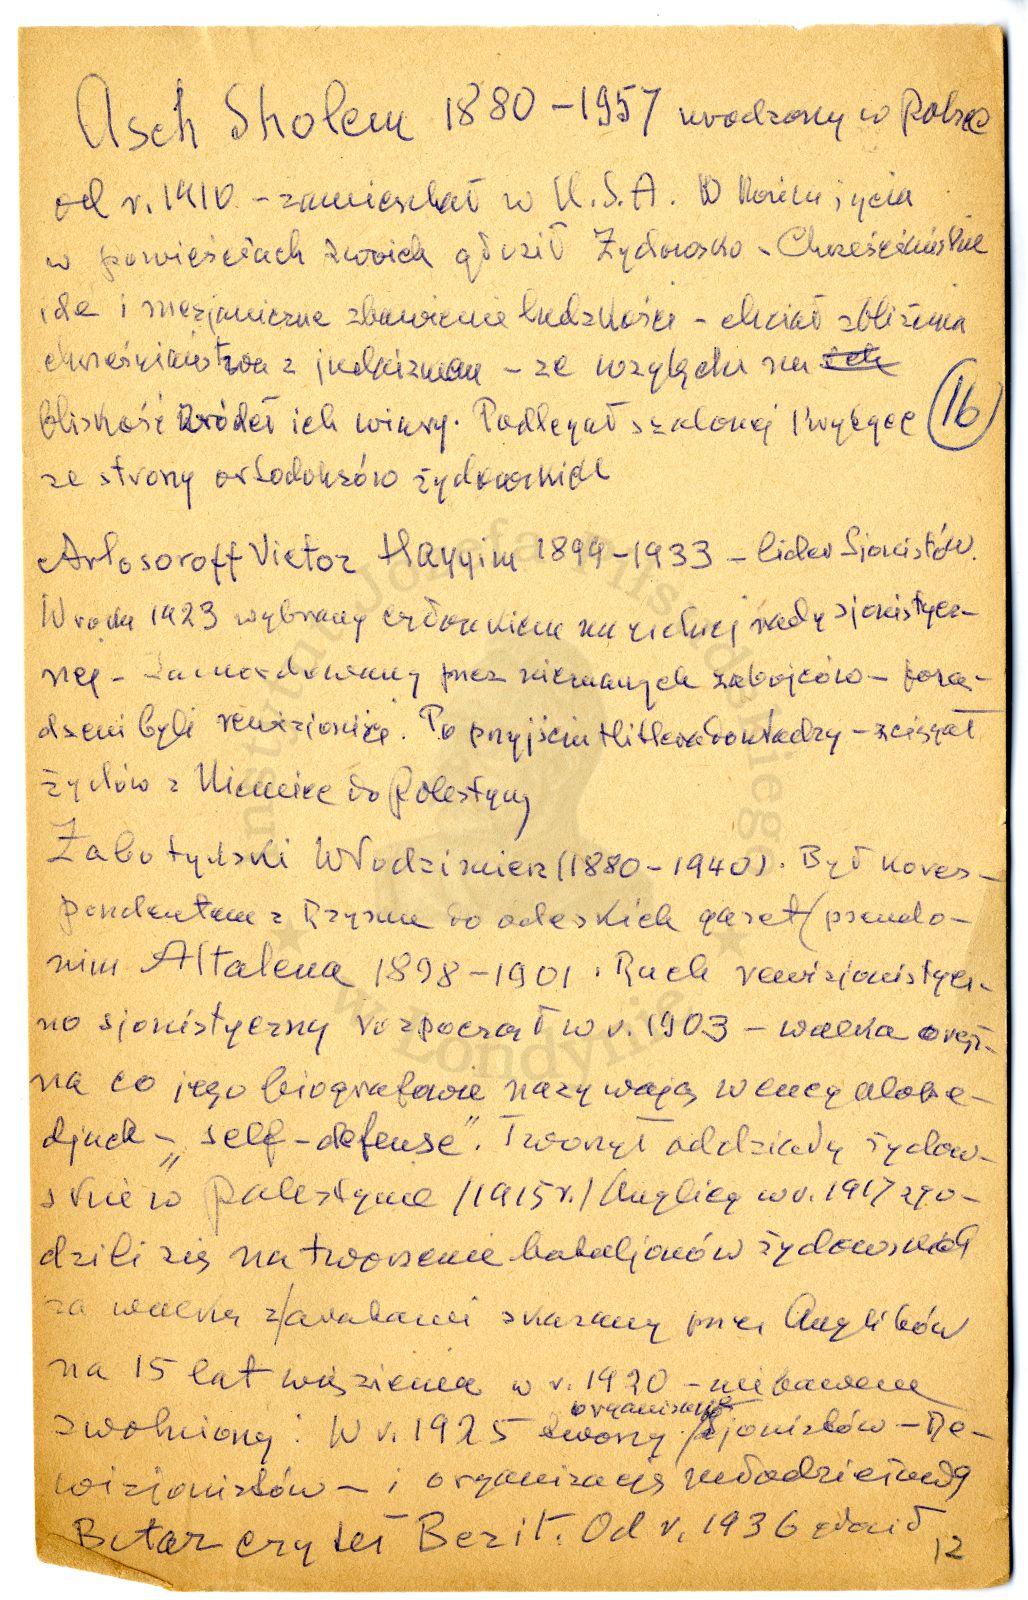 Asch Sholem 1880-1957 urodzony w Polsce
od r. 1910 - zamieszkał w U.S.A. W końcu życia
w powieściach swoich głosił Żydowsko-Chrześcijańskie
ide i mesjaniczne zbawienie ludzkości - chciał zbliżenia
chrześcijaństwa z judaizmem - ze względu na
bliskość źródeł ich wiary. Podlegał szalonej krytyce
16
ze strony ortodoksów żydowskich
Arlosoroff Victor Hayyim 1899-1933 - lider Sjonistów.
W roku 1923 wybrany członkiem naczelnej rady sjonistycz-
nej - Zamordowany przez nieznanych zabójców - posą-
dzeni byli rewizjoniści. Po przyjściu Hitlera do władzy - ściągał
żydów z Niemiec do Palestyny
Żabotyński Włodzimierz (1880-1940). Był kores-
pondentem z Rzymu do odeskich gazet (pseudo-
nim Altalena 1898-1901. Ruch rewizjonistycz-
no sjonistyczny rozpoczął w r. 1903 - walka oręż-
na co jego biografowie nazywają w encyclope-
djach - „self-defense". Tworzył oddziały żydow-
skie w Palestynie /1915 r./ Anglicy w r. 1917 zgo-
dzili się na tworzenie bataljonów żydowskich
za walkę z/arabami skazany przez Anglików
na 15 lat więzienia w r. 1920 - niebawem
zwolniony. W r. 1925 tworzy organizację Sjonistów - Re-
wizjonistów - i organizację młodzieżową
Betar czyteż Berit. Od r. 1936
12
Instytut Józefa Piłsudskiego
w Londynie